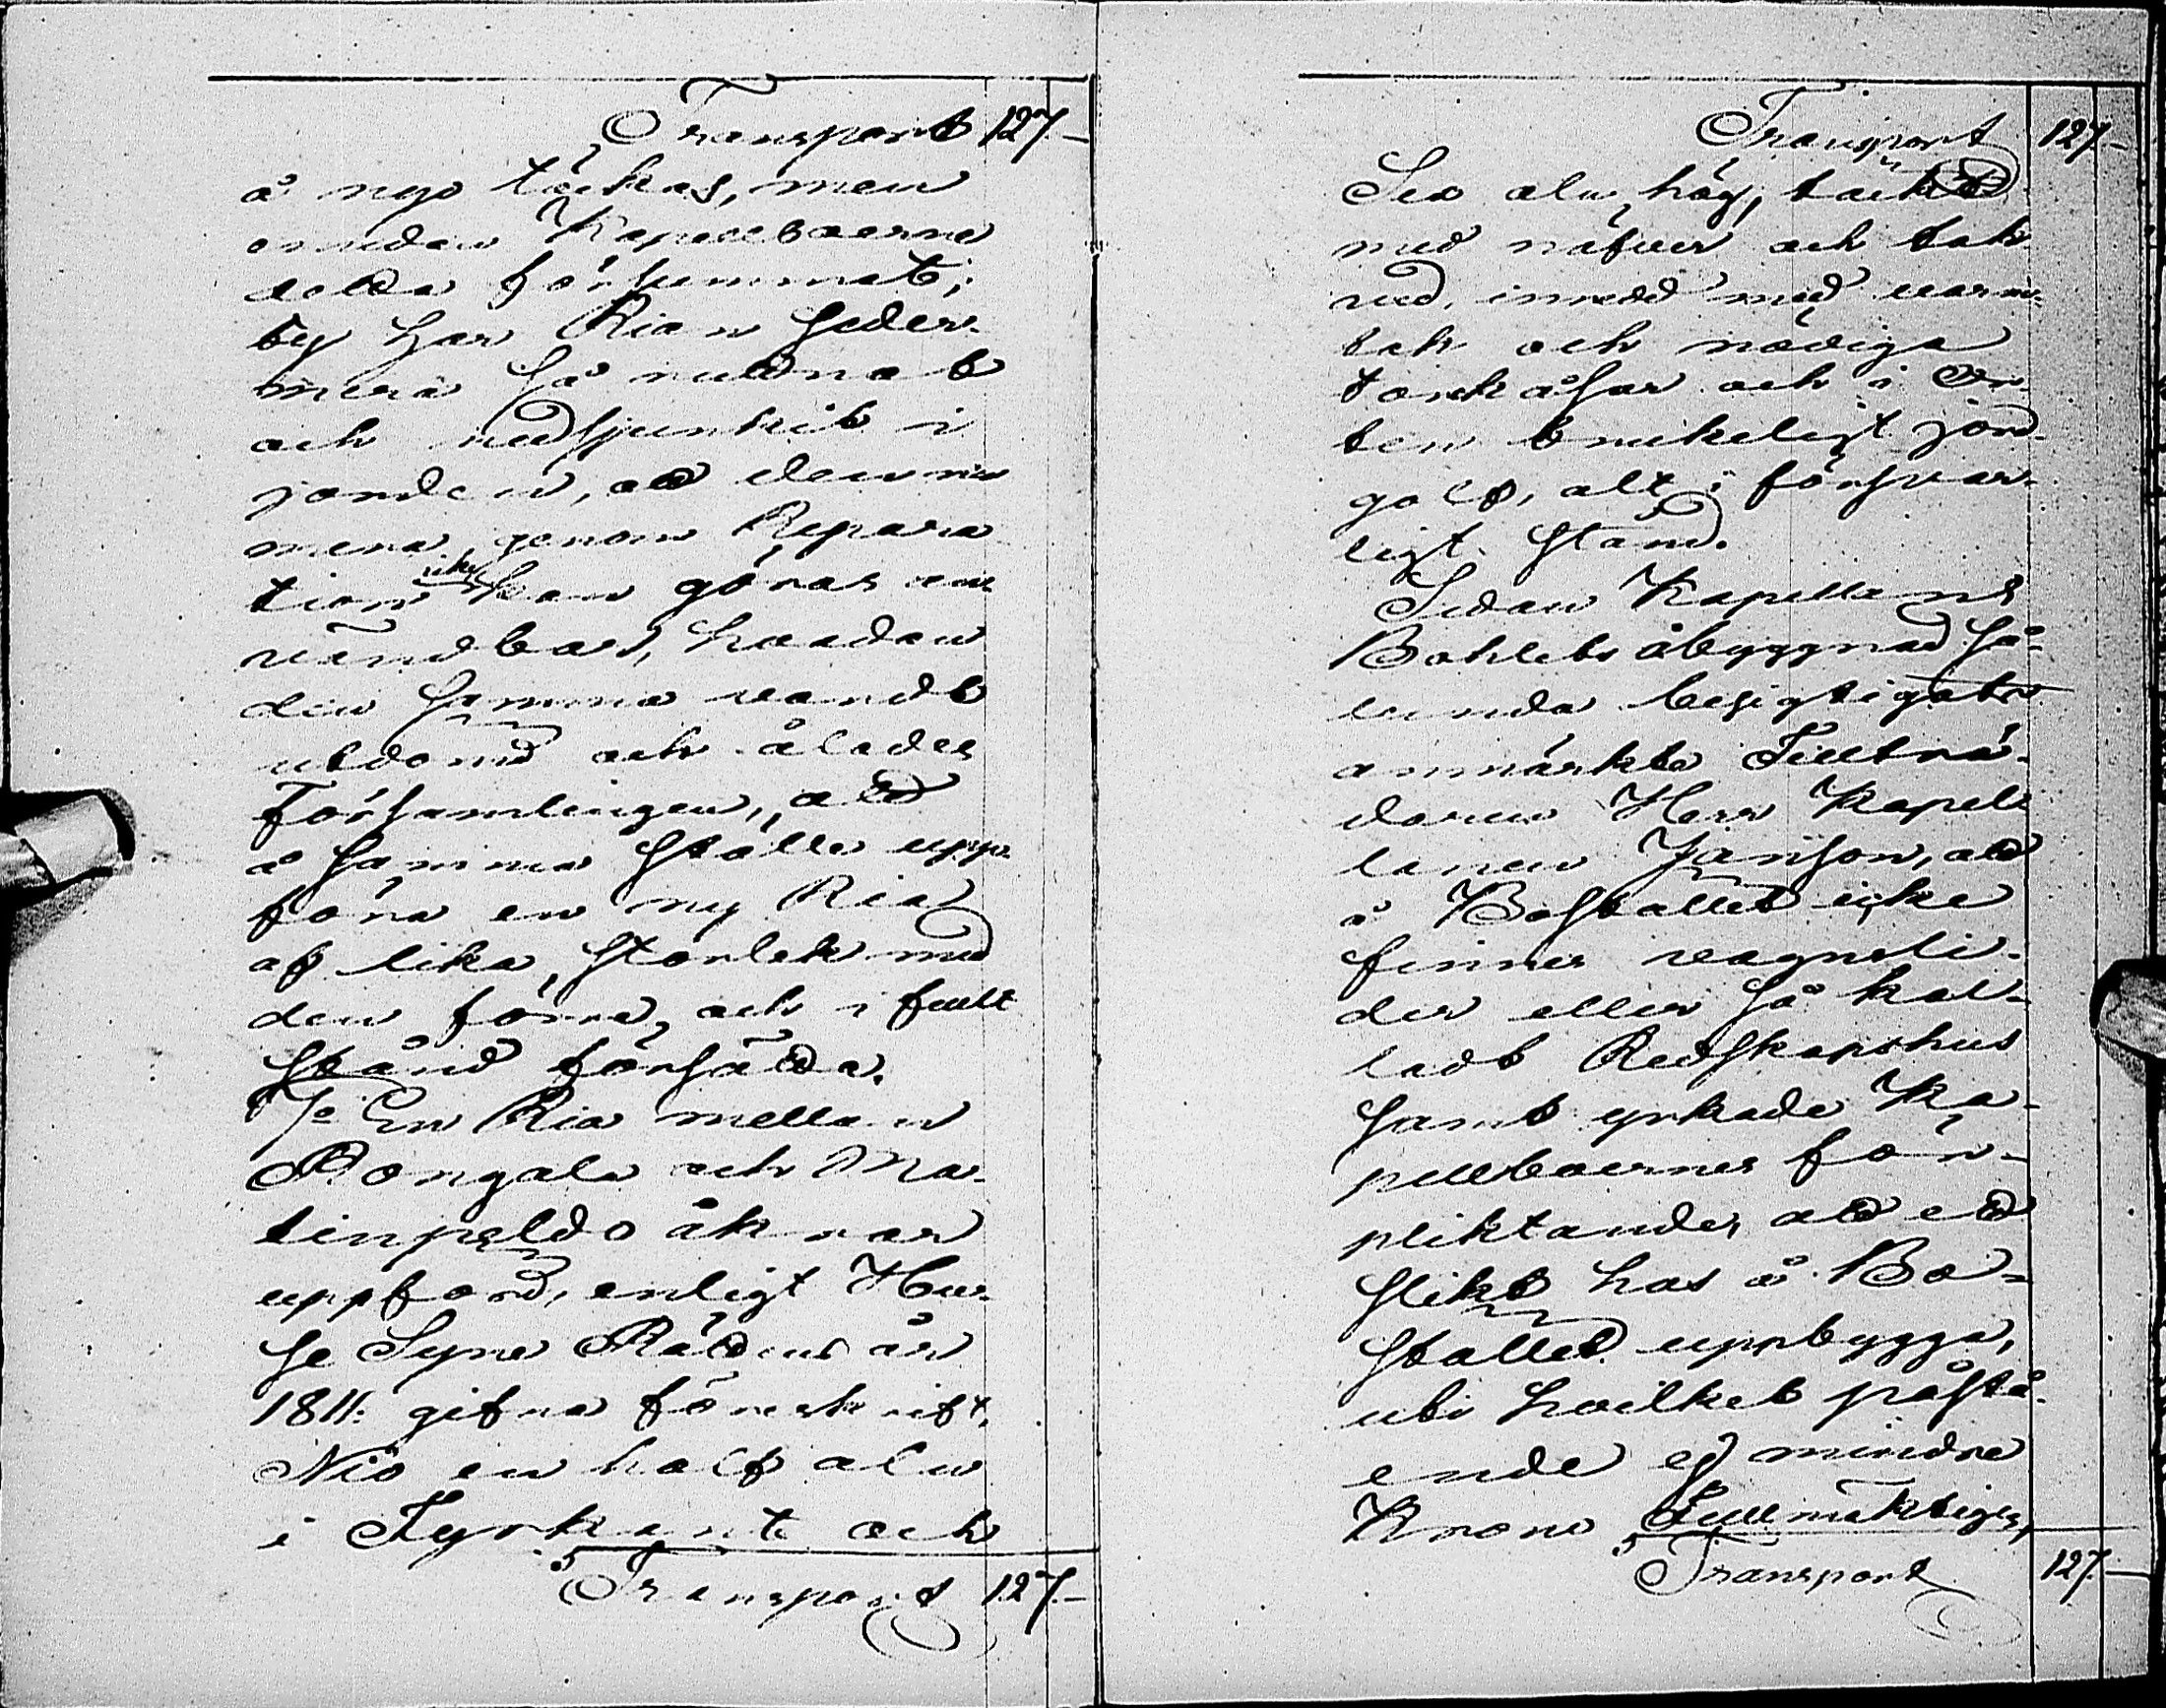 Transport 127.-
å nyo täckas, men
emedan Kapellboerne
detta försummat;
ty har Rian seder-
mera så rutnat
och nedsjunkit i
jorden, att den nu
mera genom Repara
tion icke kan göras an-
vändbar, hvadan
den samma vardt
utdömd och ålades
Församlingen, att
å samma ställe upp-
föra en ny Ria
af lika storlek med
den förra, och i fullt
stånd försätta.
7o En Ria mellan
Rongala och Ma-
tinpeldo åkrar
uppförd, enligt Hu-
se Syne Rättens år
1811: gifna föreskrift,
Nio en half aln
i Fyrkant och
Transport 127.-
Transport 127.-
Sex aln hög, täckt
med näfver och tak
ved, inredd med varm-
tak och nödiga
torkåsar och i Öf-
ten brukeligt jord-
golf, alt i försvar-
ligt stånd.
Sedan Kapellans
Bohlets åbyggnad så-
lunda besigtigats
anmärkte Tillträ-
daren Herr Kapell
lanen Jänson, att
å Boställed icke
finnes vagnsli-
der eller så kal-
ladt Redskapshus
samt yrkade Ka-
pellboernes för-
pliktande, att ett
slikt hos å Bo-
stället uppbygga,
uti hvilket påstå-
ende ej mindre
Krono Fullmäktigen,
Transport 127.-